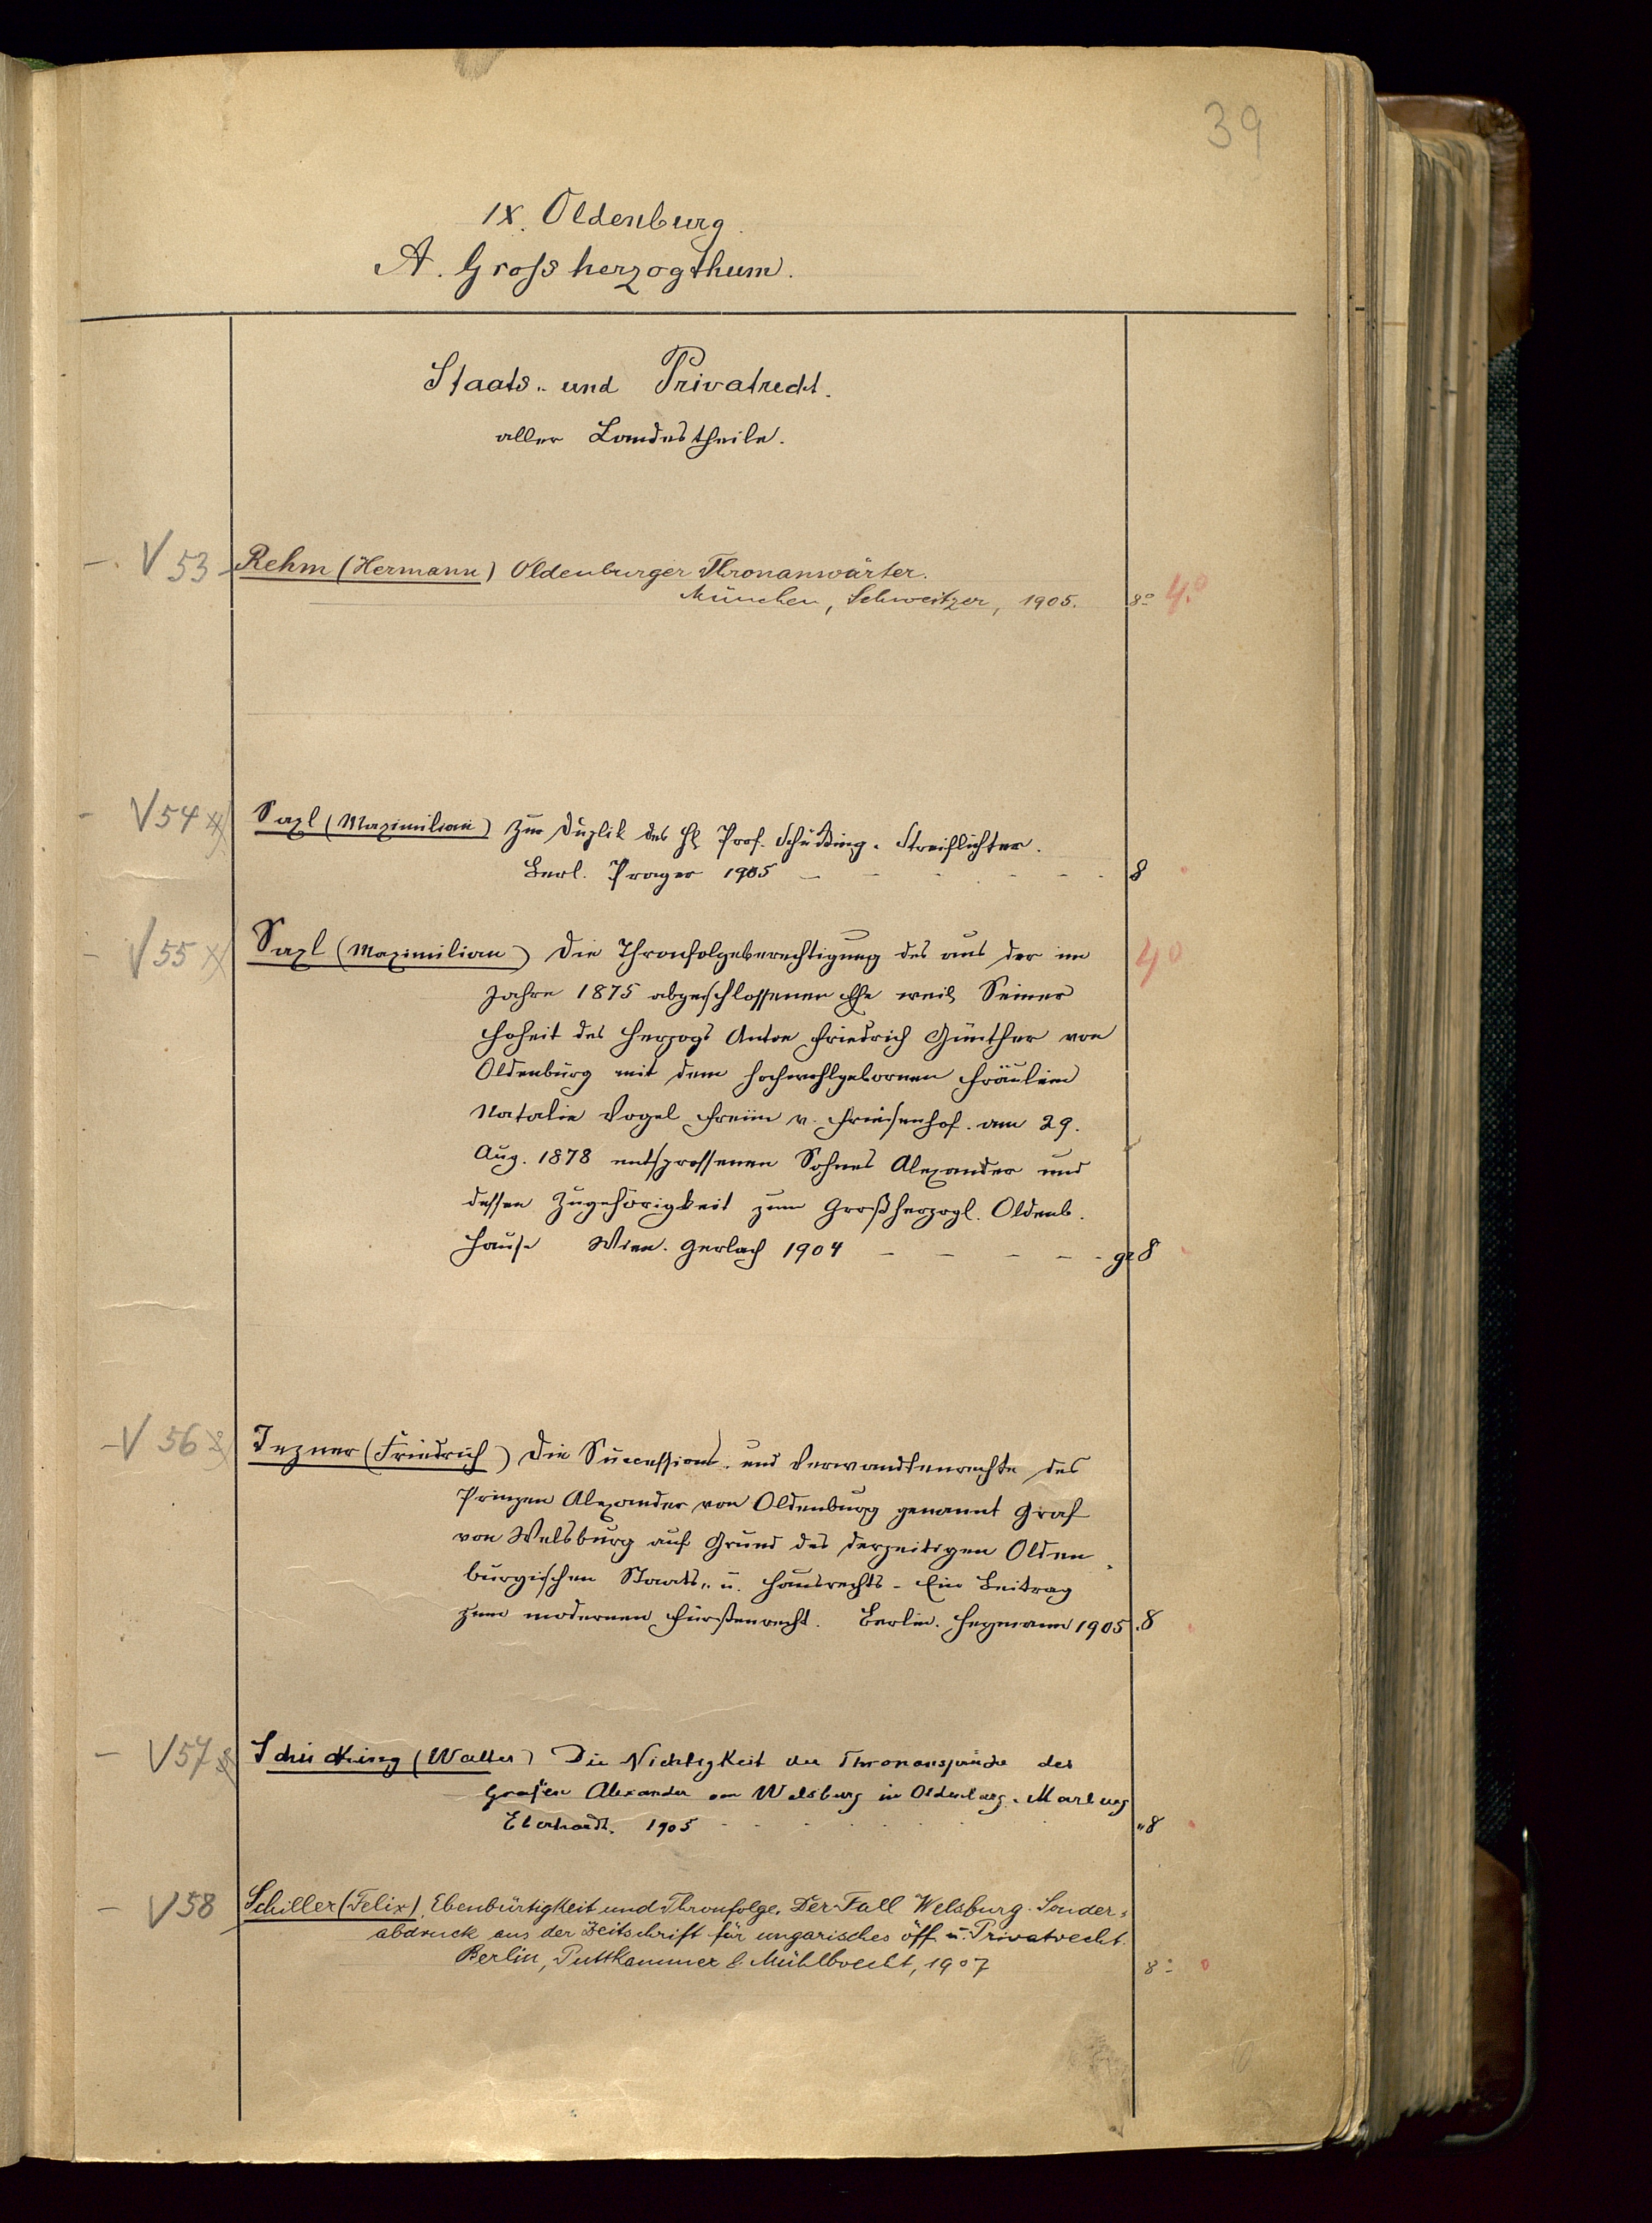 39
IX. Oldenburg.
A. Grossherzogthum.
Staats- und Privatrecht.
aller Landestheile.
- V 53 Rehm (Hermann) Oldenburger Thronanwärter.
München, Schweitzer, 1905. 8° 4.°
- V 54 Saxl (Maximilian) Zur Duplik des H Prof. Schücking. Streiflichter.
Berl. Prager 1905 - - - - - - 8
- V 55 Saxl (Maximilian) Die Thronfolgeberechtigung des aus der im 4°
Jahre 1875 abgeschlossenen Ehe weil. Seiner
Hoheit des Herzogs Anton Friedrich Günther von
Oldenburg mit dem hochwohlgebornen Fräulein
Natalie Vogel Freiin v. Friesenhof. am 29.
Aug. 1878 entsprossenen Sohnes Alexander und
dessen Zugehörigkeit zum Großherzogl. Oldenb.
Hause Wien. Gerlach 1904 - - - - - gr 8
- V 56 Tezner (Friedrich) Die Successions- und Verwandtenrechte des
Prinzen Alexander von Oldenburg genannt Graf
von Welsburg auf Grund des derzeitigen Olden-
burgischen Staats- u. Hausrechts - Ein Beitrag
zum modernen Fürstenrecht. Berlin. Heymann 1905 . 8
- V 57 Schücking (Walter) Die Nichtigkeit der Thronansprüche des
Grafen Alexander von Welsburg in Oldenburg. Marburg
Eberhardt. 1905 - - - - - - „ 8
- V 58 Schiller (Felix). Ebenbürtigkeit und Thronfolge. Der Fall Welsburg. Sonder-
abdruck aus der Zeitschrift für ungarisches öff. u. Privatrecht.
Berlin, Puttkammer & Mühlbrecht, 1907 8°